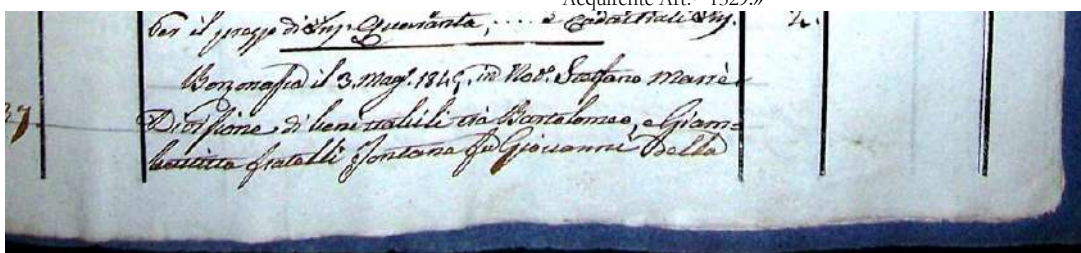 Acquirente Art.° 1329.»
Per il prezzo di Lnj. Quaranta, .... e Cadastrali Lnj. 2.
Borzonasca il 3. Magg. 1845, in Not.° Stefano Marrè
37 Divisione di beni stabili trà Bartolomeo, e Giam=
battista fratelli Fontana fu Giovanni della